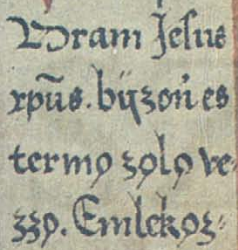 Vram Jesus
xpūs. bÿzoń es
termo zolo ve-
zzo. Emlekoz-